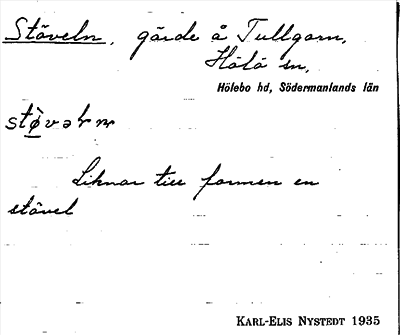 Stöveln, gärde å Tullgarn,
Hölö sn,
Hölebo hd, Södermanlands län
Liknar till formen en
stövel
KARL-ELIS NYSTEDT 1935